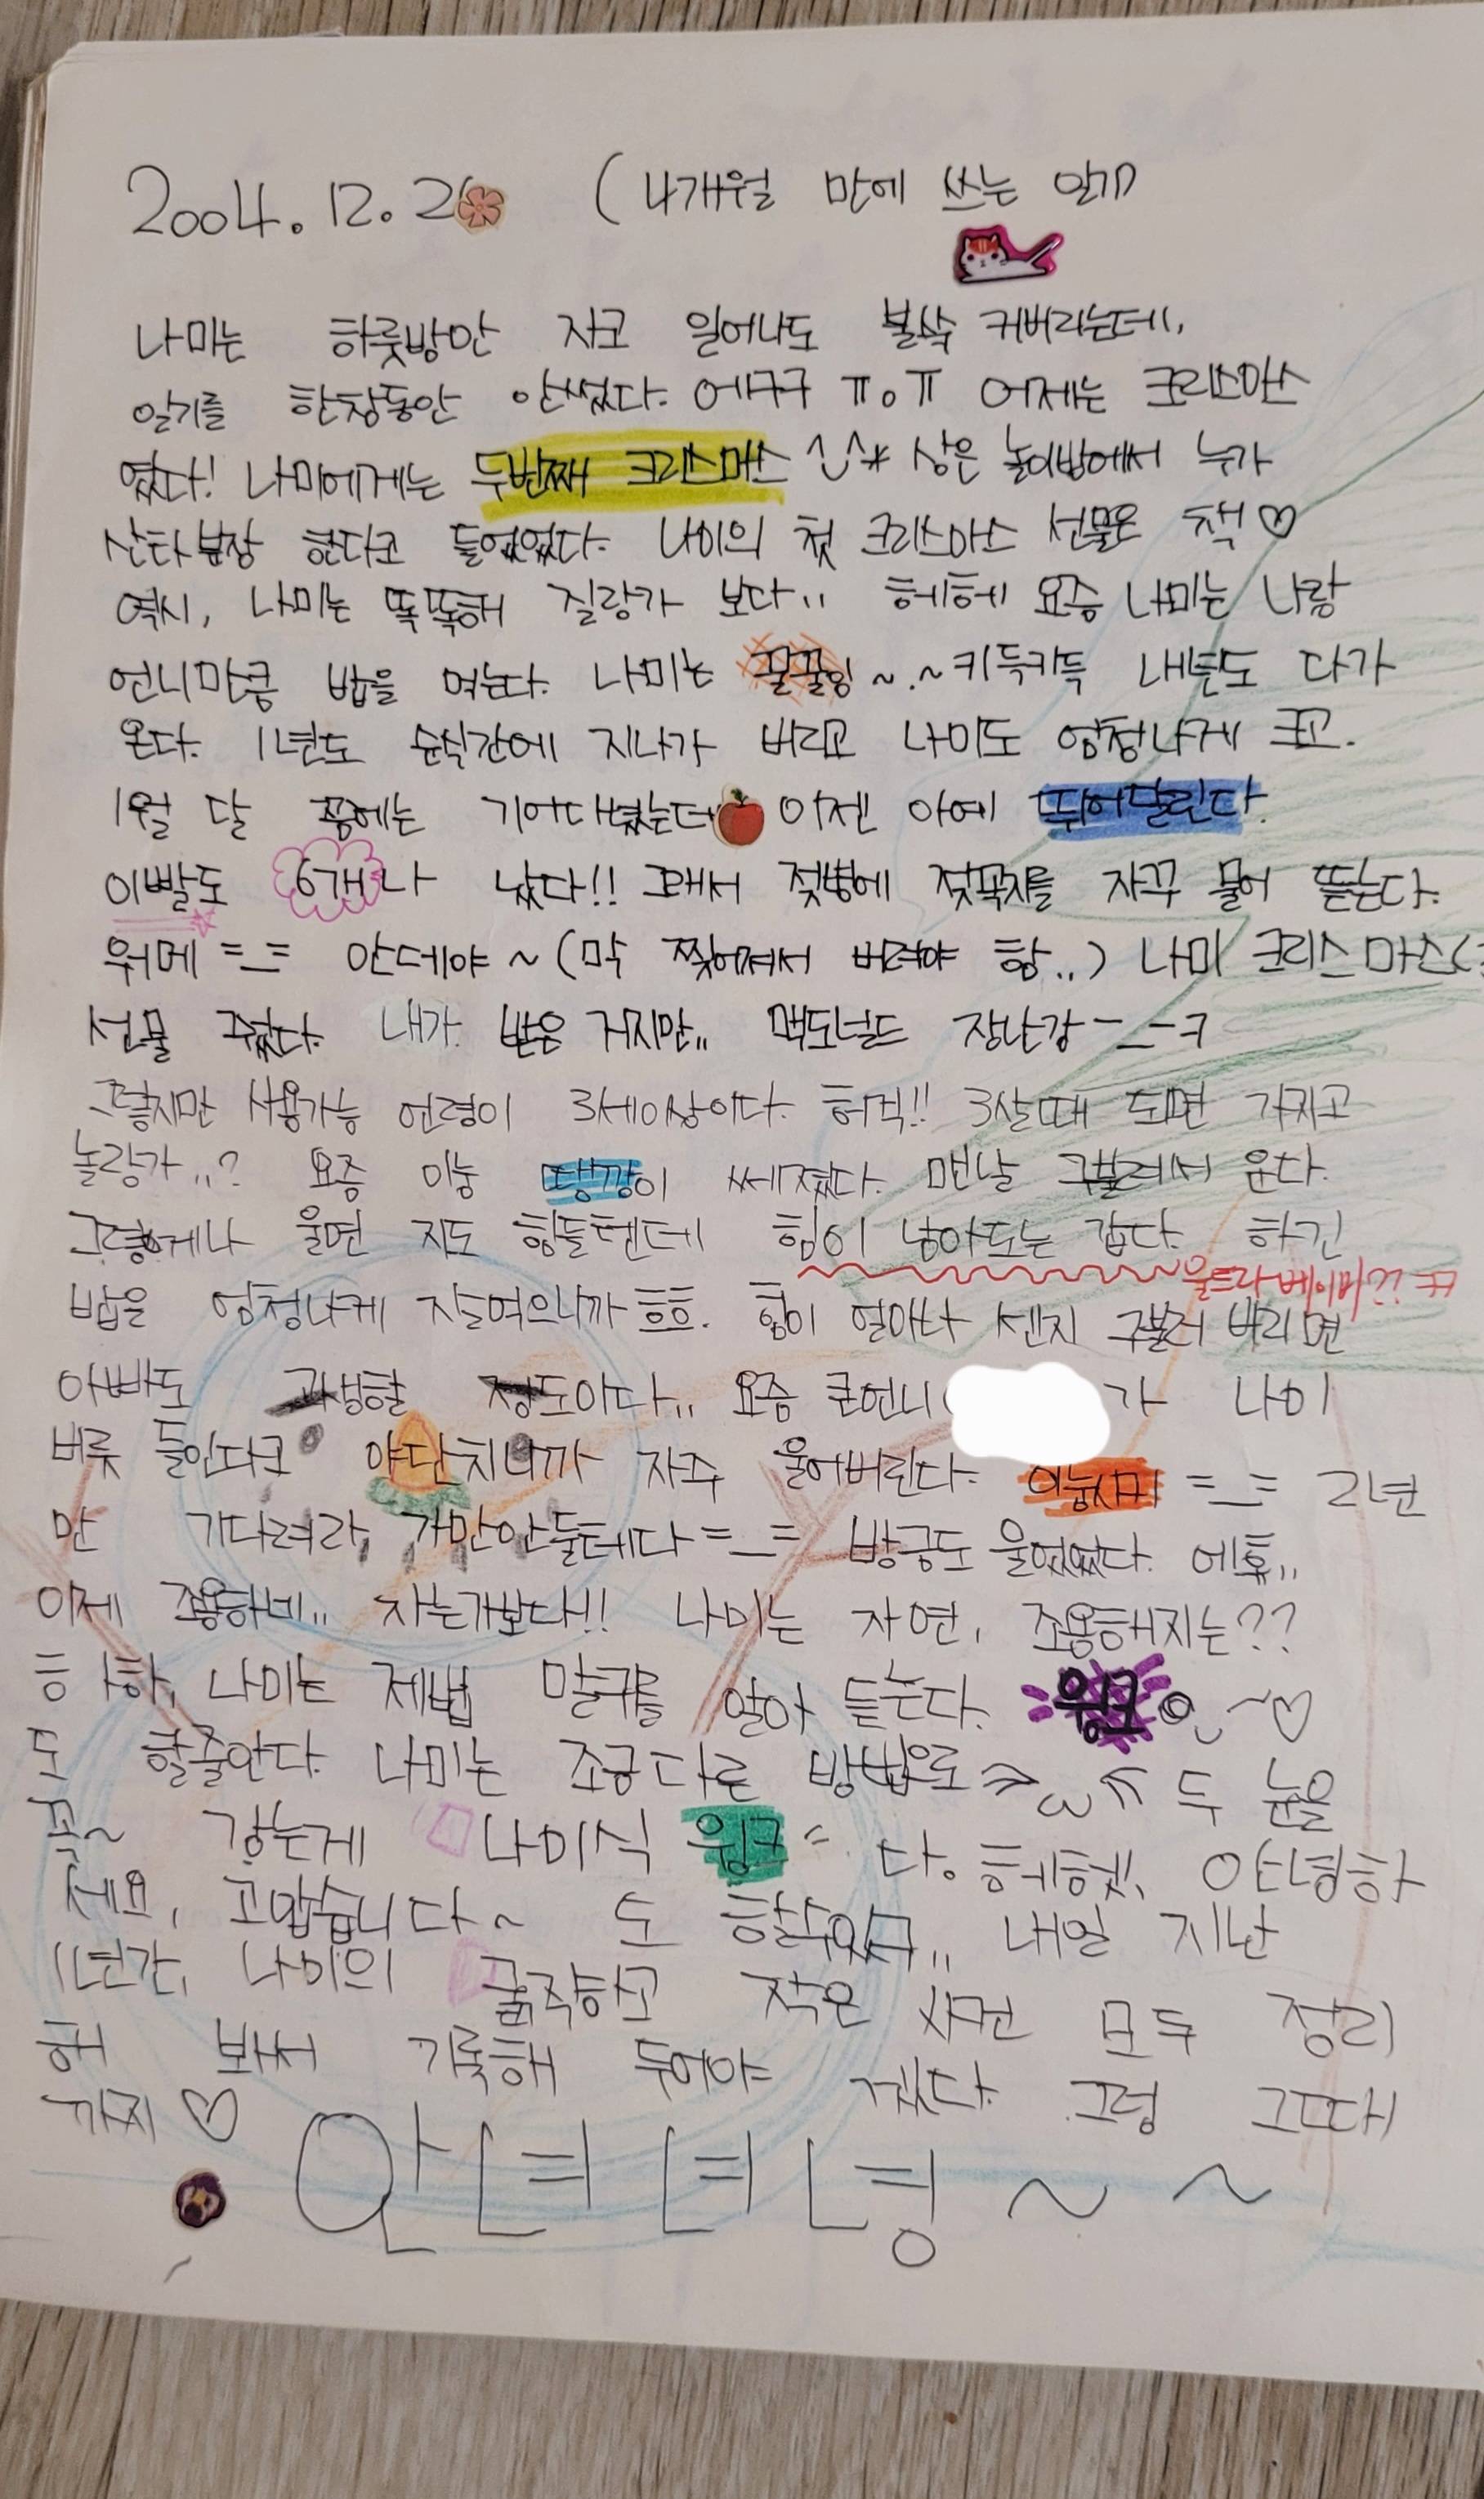 2004. 12. 2 (4개월 만에 쓰는 일기)
나미는 하룻방안 자고 일어나도 불쑥 커버리는데,
일기를 한참동안 안썼다. 에구구 ㅠoㅠ 어제는 크리스마스
였다! 나미에게는 두번째 크리스마스 ^^* 상은 놀이방에서 누가
산타분장 한다고 들었었다. 나미의 첫 크리스마스 선물은 책♡
역시, 나미는 똑똑해 질랑가 보다.. 헤헤 요즘 나미는 나랑
언니만큼 밥을 먹는다. 나미는 꿀꿀이 ~.~ 키득키득 내년도 다가
온다. 1년도 순식간에 지나가 버리고 나미도 엄청나게 크고.
1월 달 쯤에는 기어다녔는데 이젠 아예 뛰어달린다.
이빨도 6개나 났다!! 그래서 젖병에 젖꼭지를 자꾸 물어 뜯는다.
워메 =_= 안데야 ~ (막 찢어져서 버려야 함..) 나미 크리스마스
선물 줬다. 내가 받은 거지만.. 맥도널드 장난감 -_-ㅋ
그렇지만 사용가능 연령이 3세이상이다. 허걱!! 3살때 되면 가지고
놀랑가..? 요즘 이놈 땡깡이 쎄졌다. 맨날 구불러서 운다.
그렇게나 울면 지도 힘들텐데 힘이 남아도는 갑다. 하긴
울트라 베이비?? ㅋㅋ
밥을 엄청나게 잘먹으니까 흐흐. 힘이 얼마나 센지 구불러 버리면
아빠도 고생할 정도이다.. 요즘 큰언니( 가 나미
버릇 들인다고 야단치니까 자주 울어버린다. =_= 2년
만 기다려라, 가만안둘테다 =_= 방금도 울었었다. 에휴..
이제 조용하네.. 자는가보다!! 나미는 자면, 조용해지는??
하하, 나미는 제법 말귀를 알아 듣는다. 윙크 ~♡
도 할줄안다. 나미는 조금 다른 방법으로 >ω< 두 눈을
꼭~ 감는게 나미식 윙크 다. 헤헷, 안녕하
세요, 고맙습니다~ 도 할수있구.. 내일 지난
1년간, 나미의 굵직하고 작은 사건 모두 정리
해 보아서 기록해 두어야 겠다. 그럼 그때
까지 ♡
안녀녀녕 ~ ~